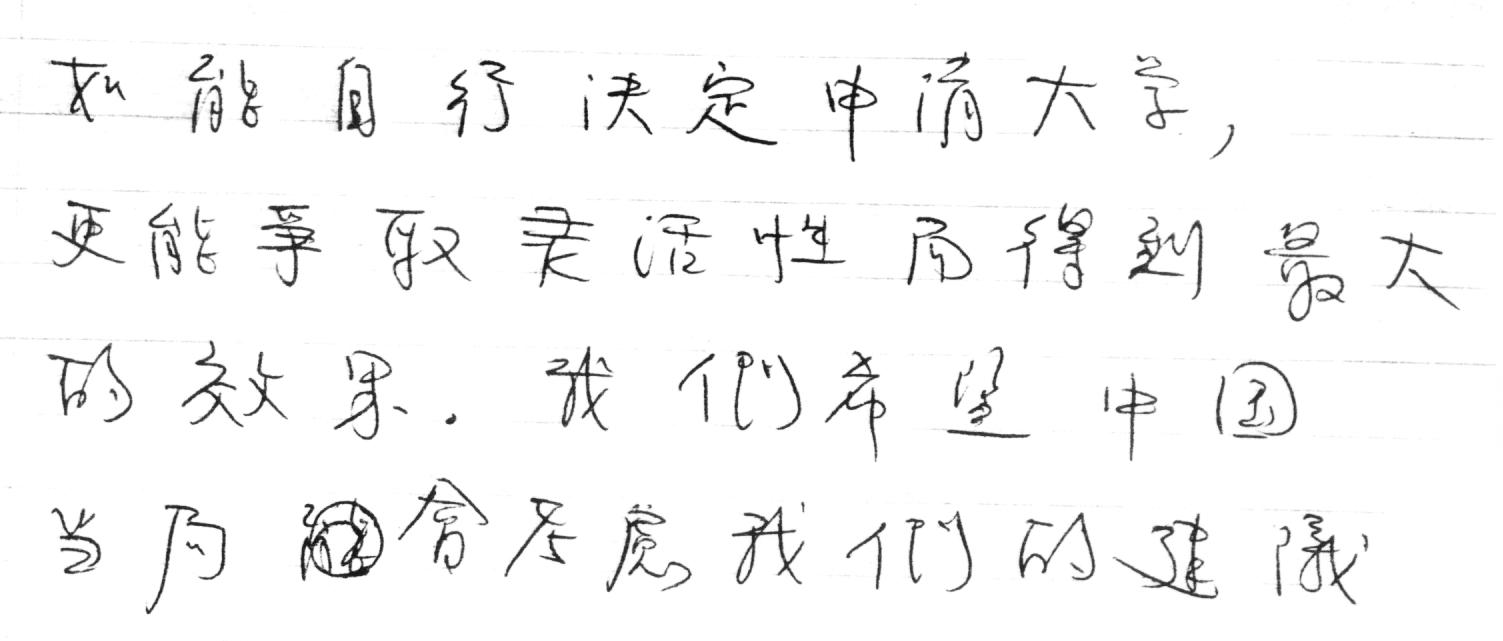 如能自行决定申请大学,
更能爭取灵活性而得到最大
的效果. 我們希望中国
当局會考慮我們的建議